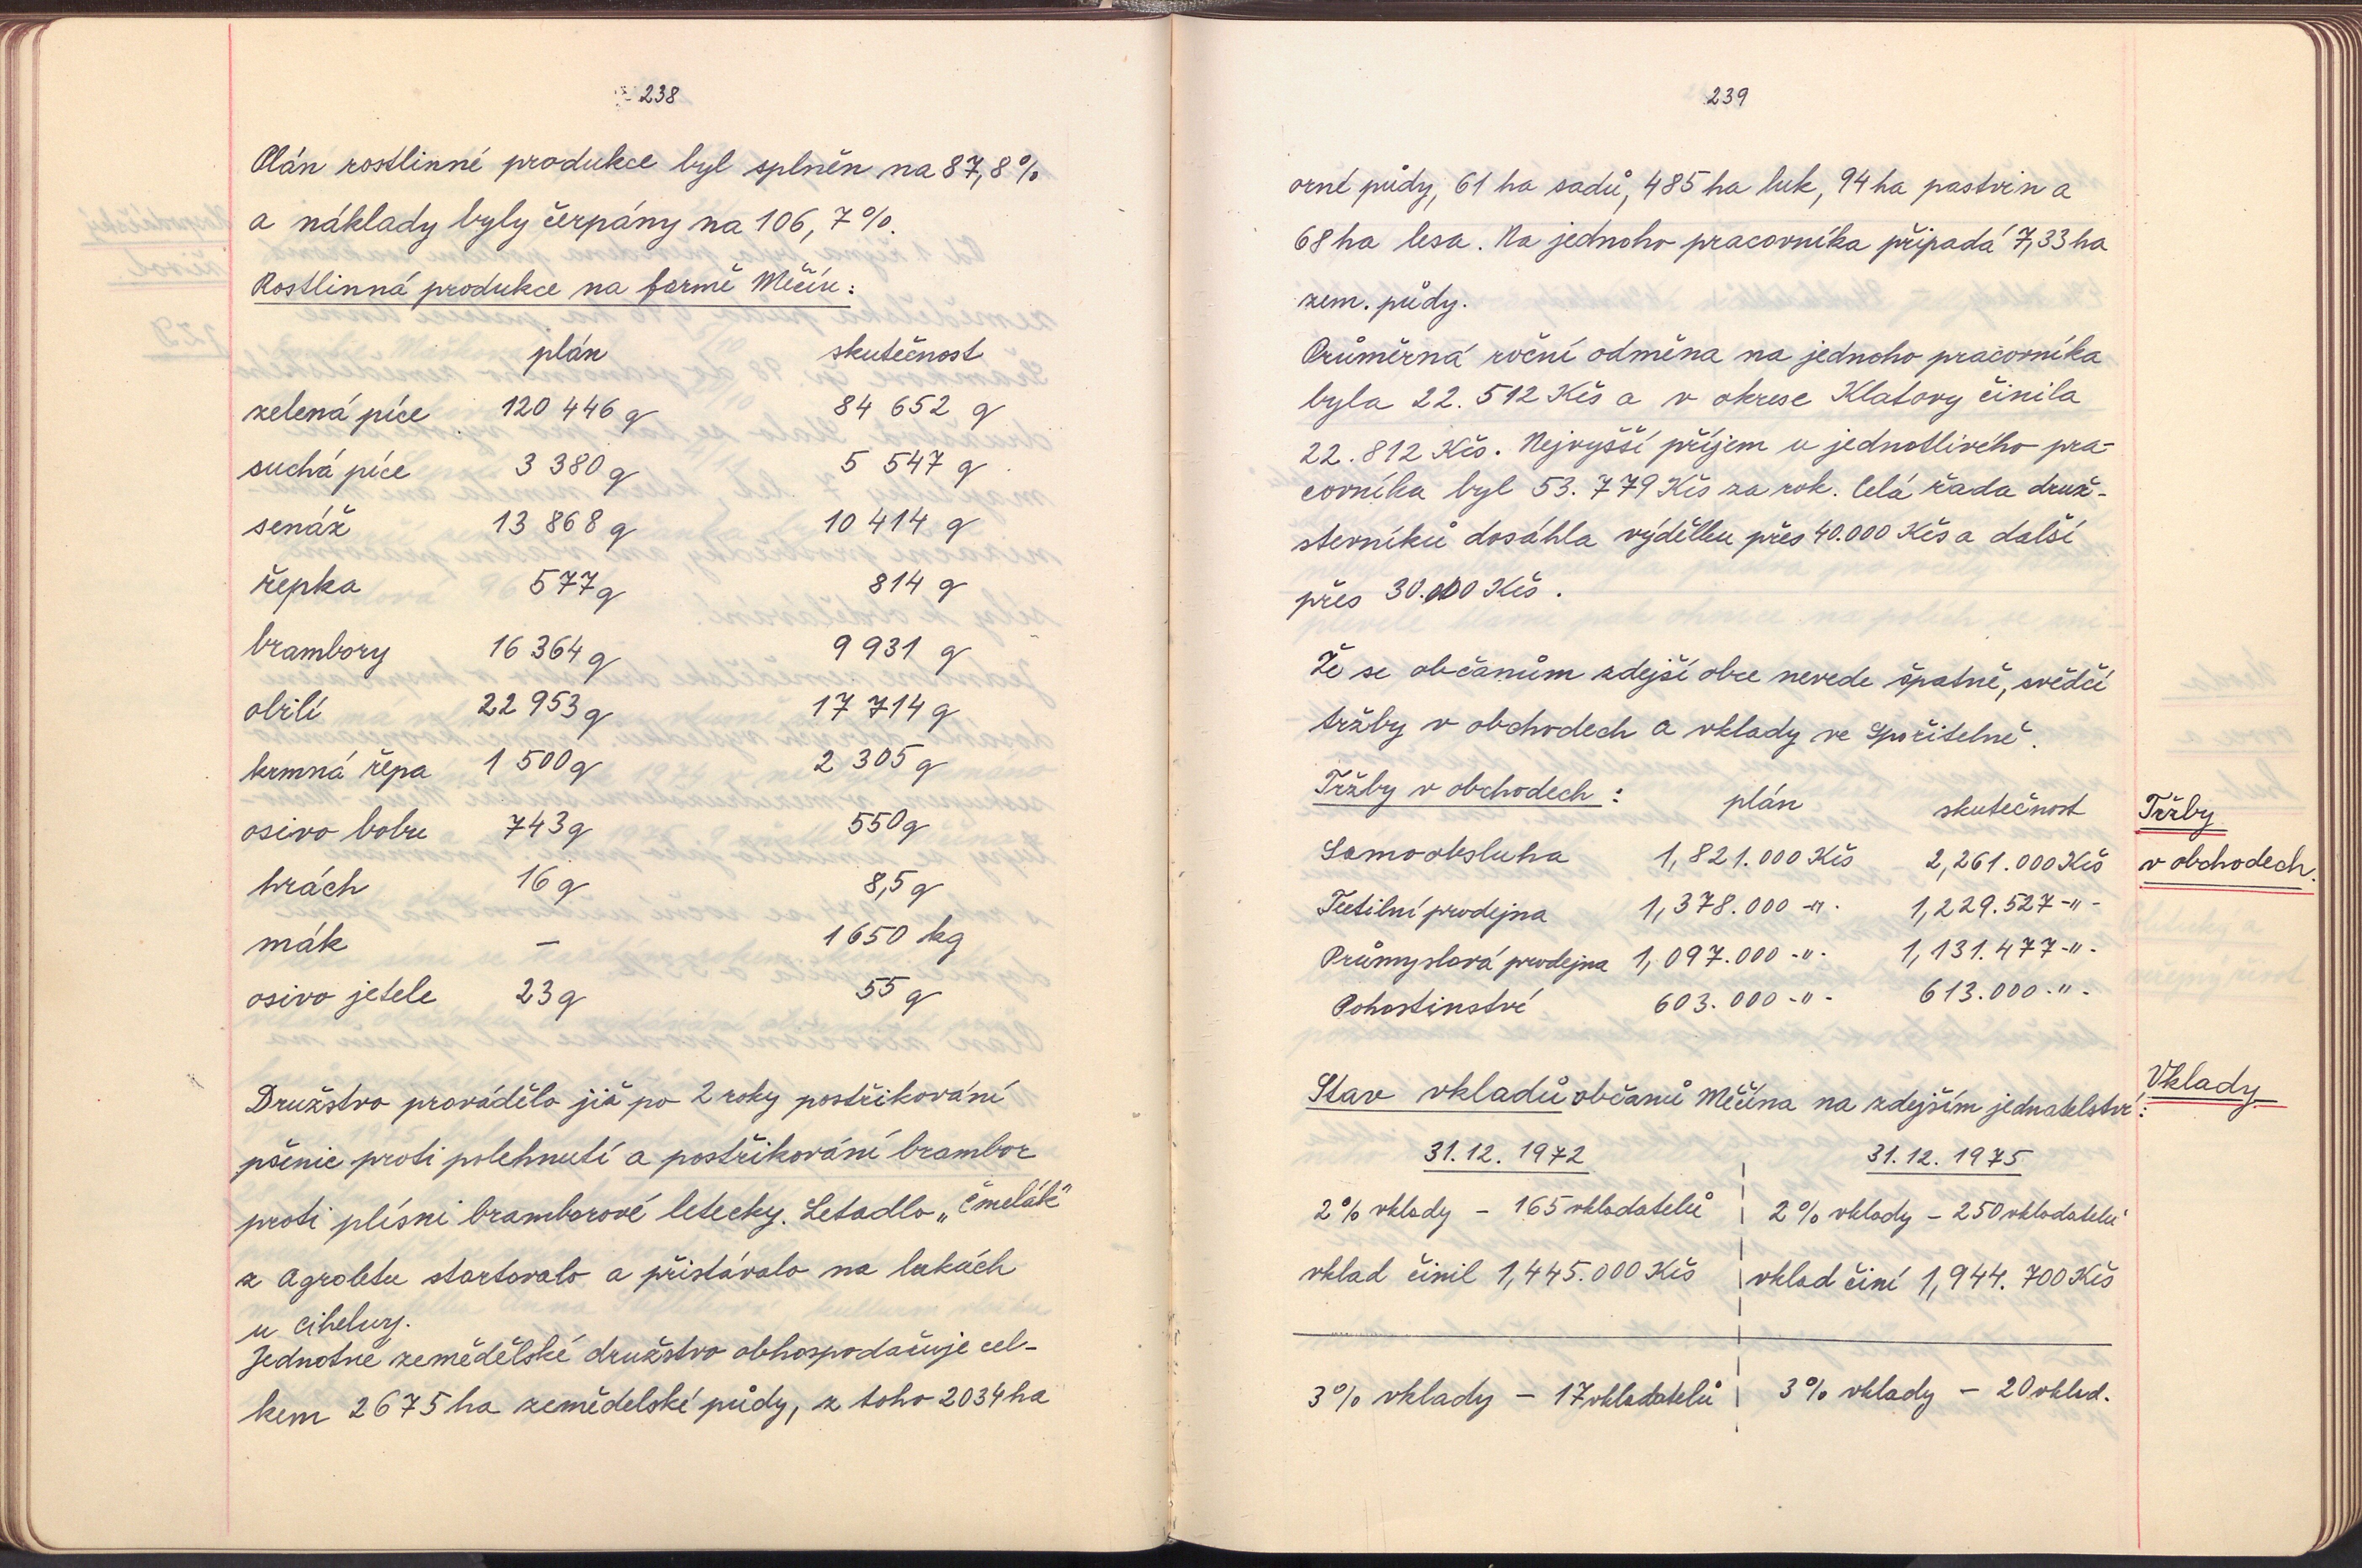 238
Plán rostlinné produkce byl splněn na 87,8%
a náklady byly čerpány na 106,7%.
Rostlinná produkce na farmě Měčín:
plán skutečnost
zelená píce 120 446 q 84 652 q
suchá píce 3 380 q 5 547 q
senáž 13 868 q 10 414 q
řepka 577 q 814 q
brambory 16 364 q 9 931 q
obilí 22 953 q 17 714 q
krmná řepa 1 500 q 2 305 q
osivo bobu 743 q 550 q
hrách 16 q 8,5 q
mák – 1650 kg
osivo jetele 23 q 55 q
Družstvo provádělo již po 2 roky postřikování
pšenic proti polehnutí a postřikování brambor
proti plísni bramborové letecky. Letadlo „Čmelák"
z Agroletu startovalo a přistávalo na lukách
u cihelny.
Jednotné zemědělské družstvo obhospodařuje cel-
kem 2675 ha zemědělské půdy, z toho 2034 ha
239
orné půdy, 61 ha sadů, 485 ha luk, 94 ha pastvin a
68 ha lesa. Na jednoho pracovníka připadá 7,33 ha
zem. půdy.
Průměrná roční odměna na jednoho pracovníka
byla 22.512 Kčs a v okrese Klatovy činila
22.812 Kčs. Nejvyšší příjem u jednotlivého pra-
covníka byl 53.779 Kčs za rok. Celá řada druž-
stevníků dosáhla výdělku přes 40.000 Kčs a další
přes 30.000 Kčs.
Že se občanům zdejší obce nevede špatně, svědčí
tržby v obchodech a vklady ve Spořitelně.
Tržby v obchodech: plán skutečnost
Samoobsluha 1,821.000 Kčs 2,261.000 Kčs
Textilní prodejna 1,378.000 -"- 1,229.527 -"-
Průmyslová prodejna 1,097.000 -"- 1,131.477 -"-
Pohostinství 603.000 -"- 613.000 -"-
Tržby
v obchodech.
Stav vkladů občanů Měčína na zdejším jednatelství:
Vklady
31.12.1972 31.12.1975
2% vklady – 165 vkladatelů 2% vklady – 250 vkladatelů
vklad činil 1,445.000 Kčs vklad činí 1,944.700 Kčs
3% vklady – 17 vkladatelů 3% vklady – 20 vklad.